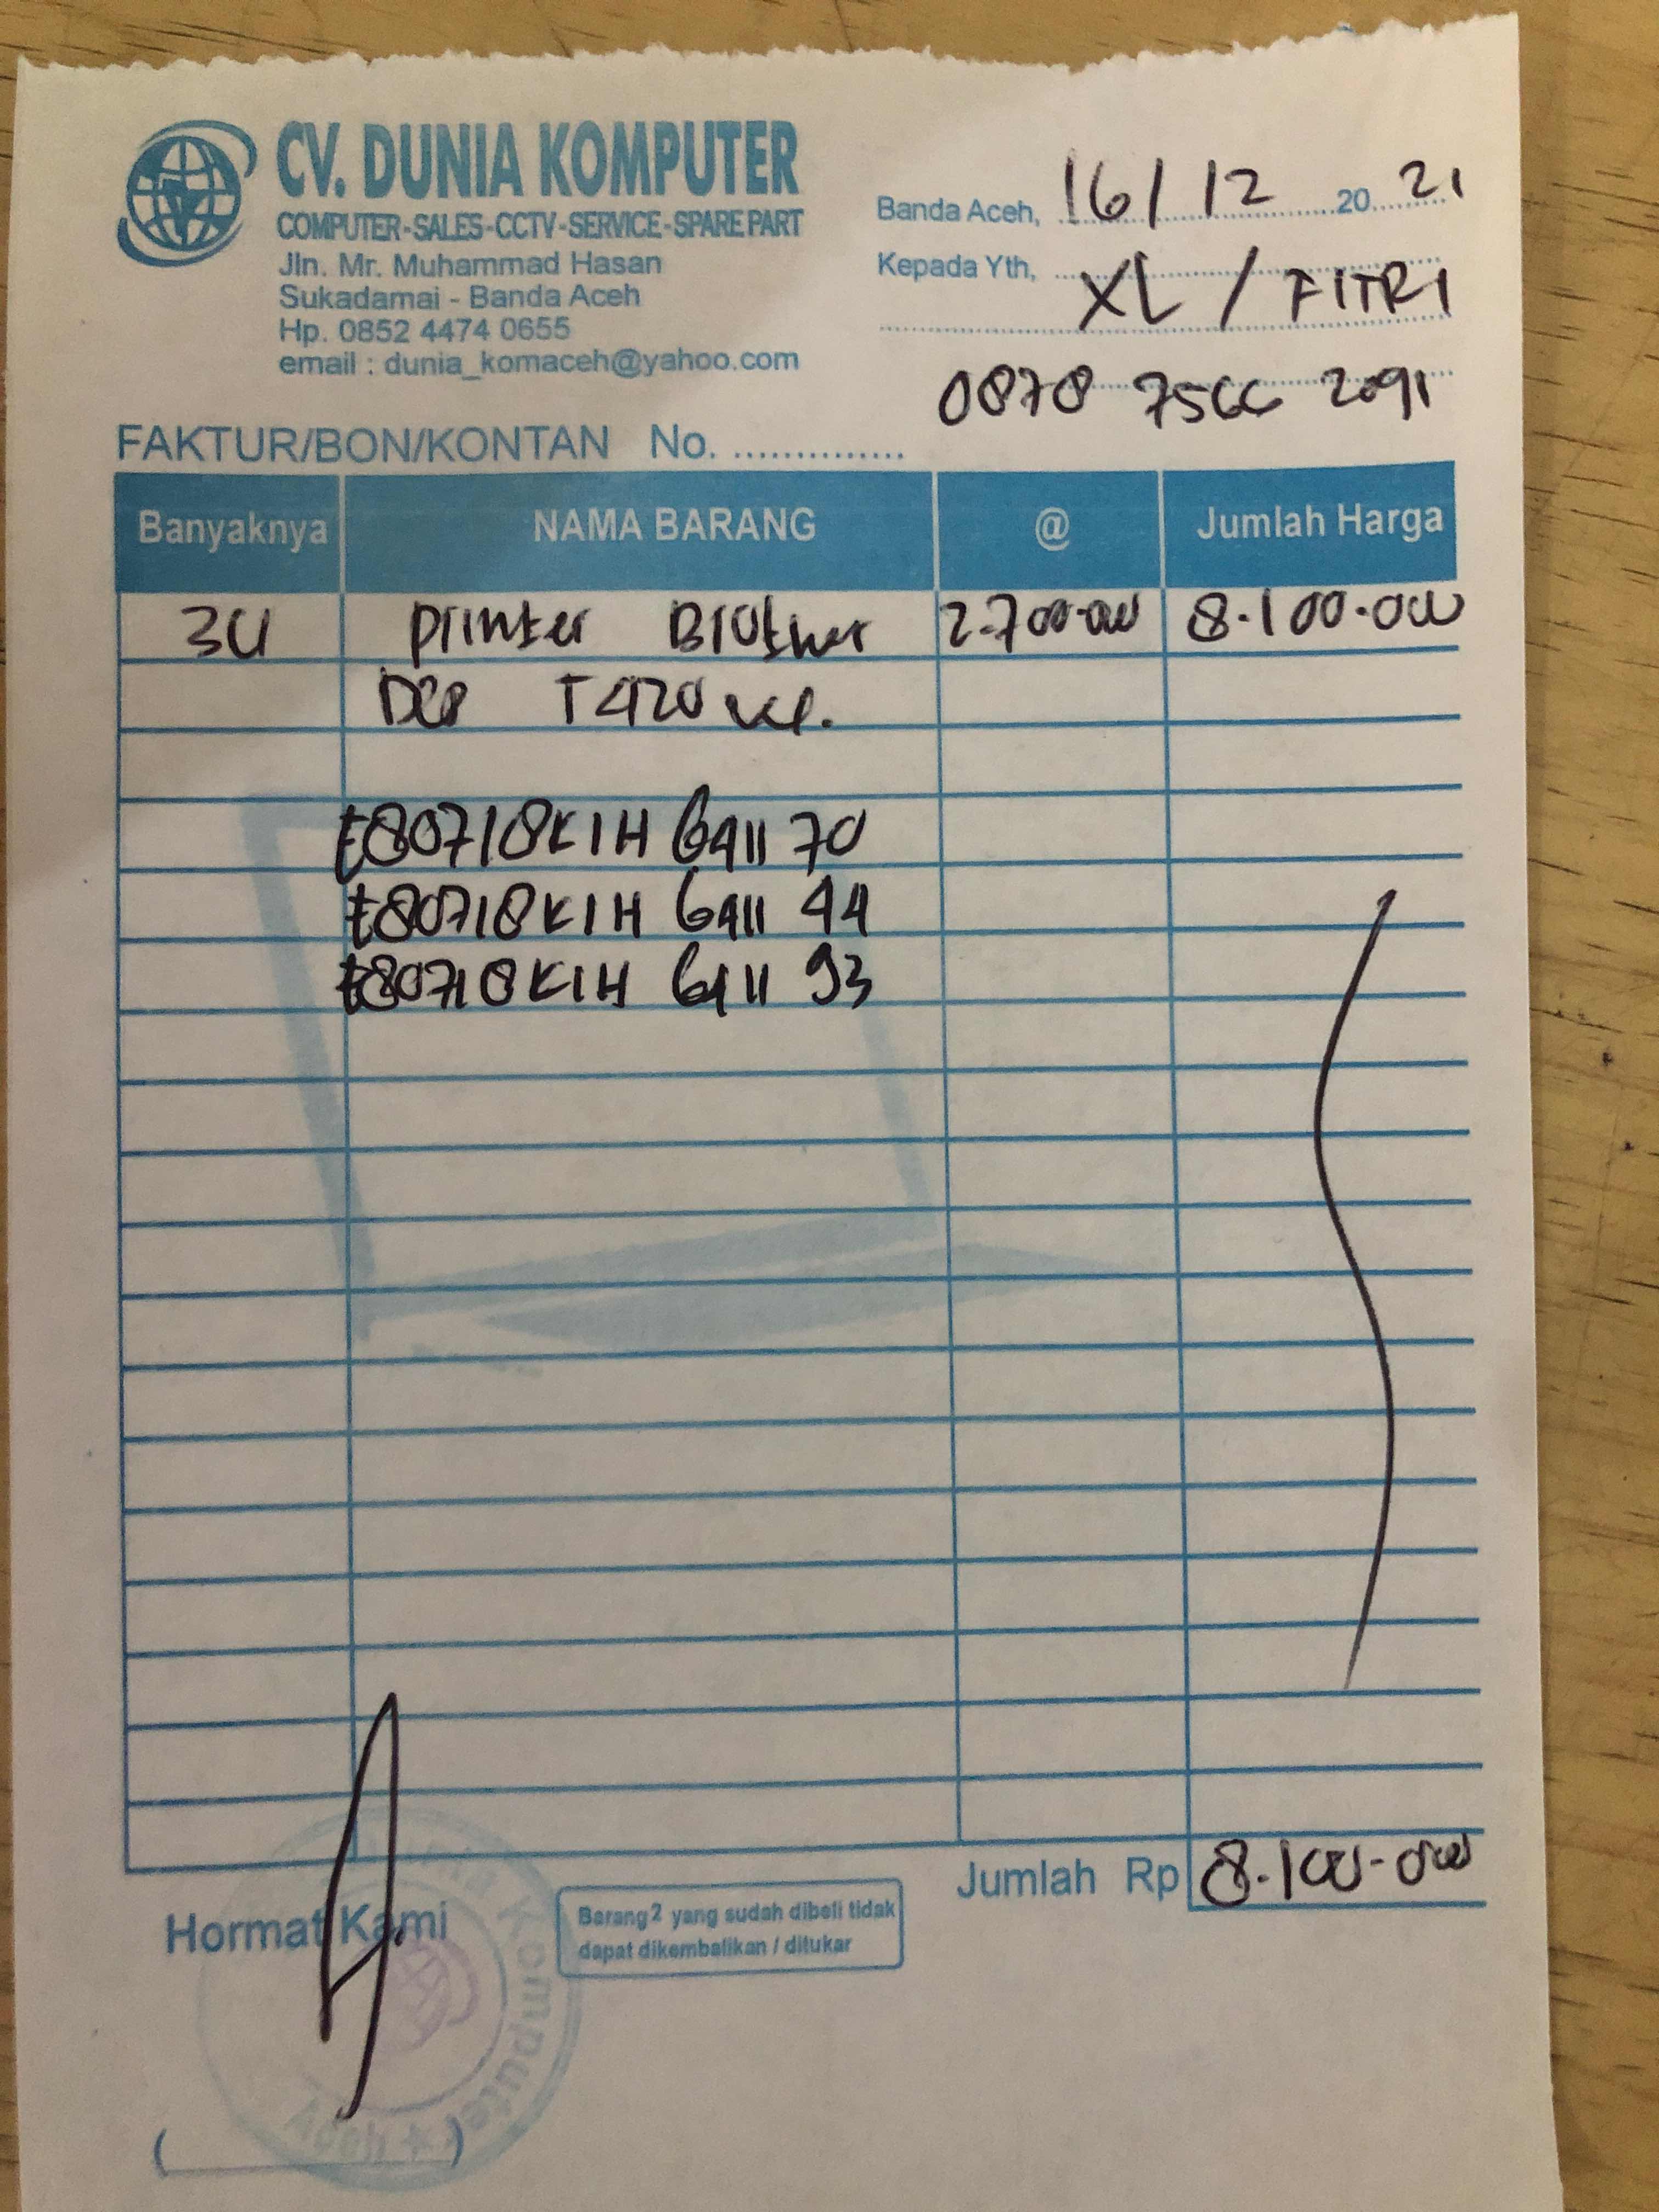 CV. DUNIA KOMPUTER
COMPUTER-SALES-CCTV-SERVICE-SPARE PART
Jln. Mr. Muhammad Hasan
Sukadamai - Banda Aceh
Hp. 0852 4474 0655
email : dunia_komaceh@yahoo.com
Banda Aceh, 16/12 20 21
Kepada Yth, XL / FITRI
0878 7566 2091
FAKTUR/BON/KONTAN No. ...............
Banyaknya NAMA BARANG @ Jumlah Harga
3U Printer Brother 2.700.000 8.100.000
DCP T420
E80718K1H 6411 70
E80718K1H 6411 44
E80718K1H 6411 93
Jumlah Rp 8.100.000
Hormat Kami
Barang2 yang sudah dibeli tidak
dapat dikembalikan / ditukar
Komputer
Aceh